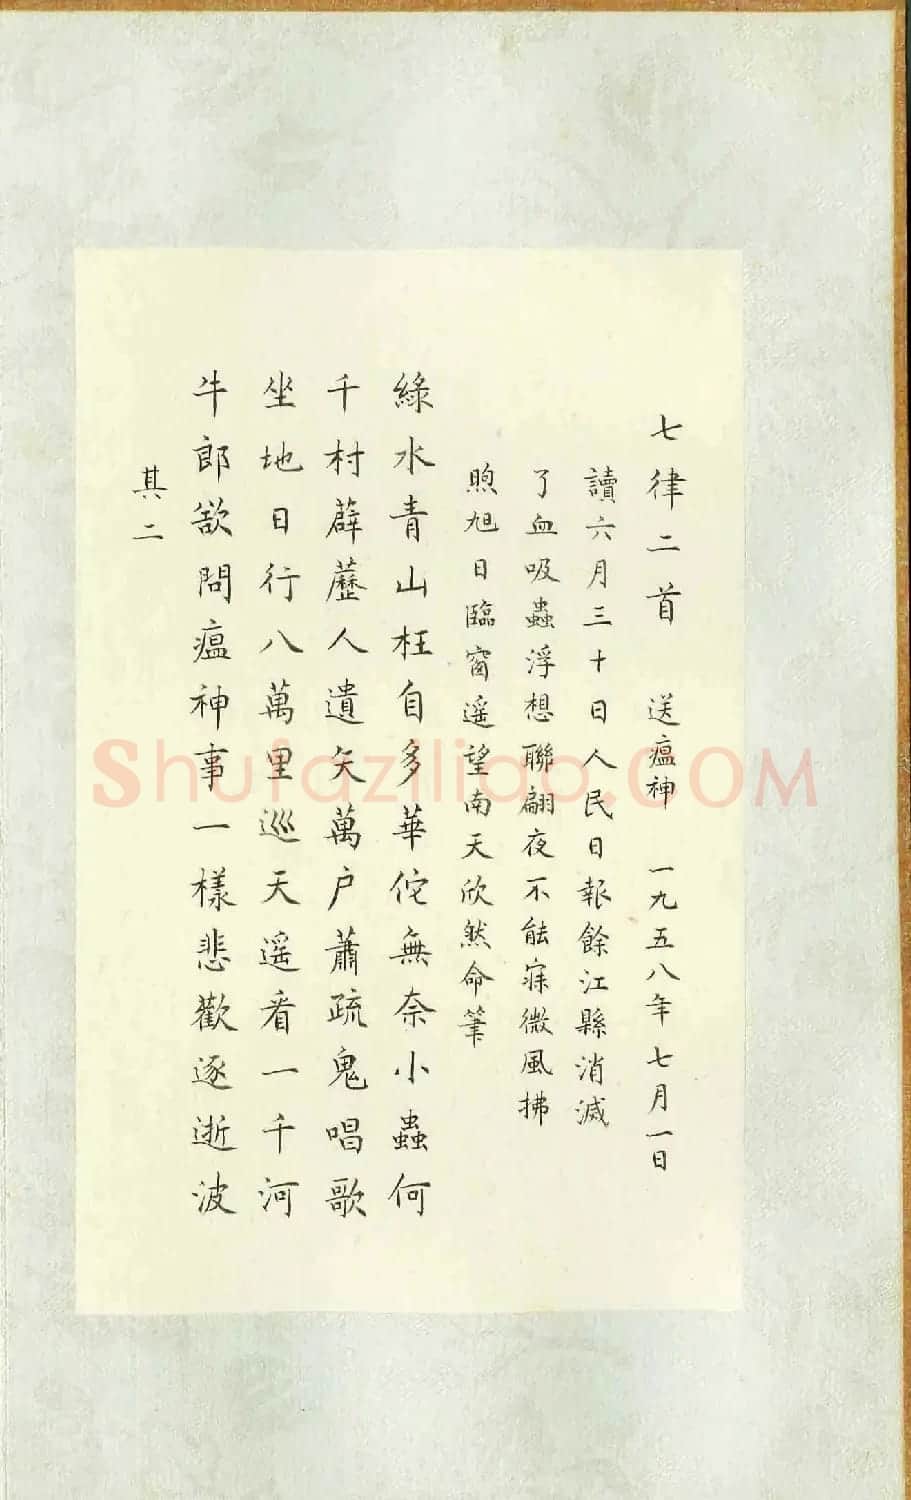 七律二首 送瘟神 一九五八年七月一日
讀六月三十日人民日報餘江縣消滅
了血吸蟲浮想聯翩夜不能寐微風拂
煦旭日臨窗遥望南天欣然命筆
綠水青山枉自多華佗無奈小蟲何
千村薜藶人遺矢萬户蕭疏鬼唱歌
坐地日行八萬里巡天遥看一千河
牛郎欲問瘟神事一樣悲歡逐逝波
其二
Shufaziliao.COM